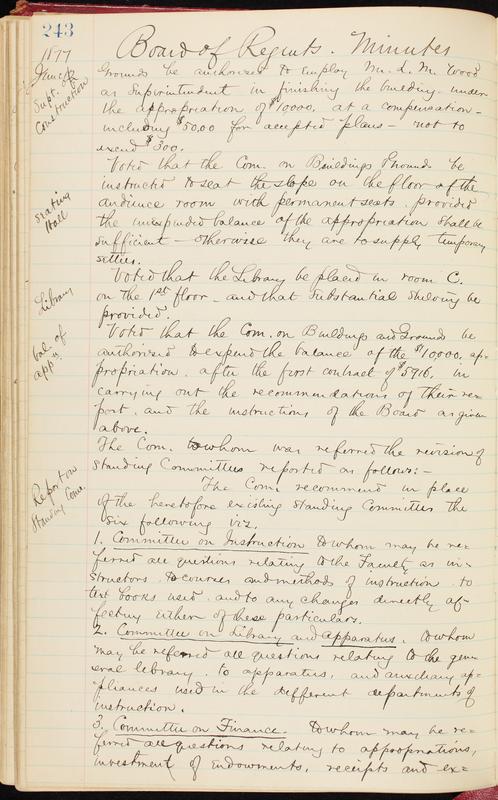 243
Board of Regents. Minutes
1877
June 28
Supt. of
Construction
Grounds be authorized to employ Mr. L. M. Wood
as Superintendent in finishing the building under
the appropriation of $10000, at a compensation -
including $50.00 for accepted plans - not to
exceed $300.
Voted that the Com. on Buildings & Grounds be
instructed to seat the slope on the floor of the
audience room with permanent seats, provided
the unexpended balance of the appropriation shall be
sufficient - otherwise they are to supply temporary
settees.
Seating
Hall
Voted that the Library be placed in room C.
on the 1st floor - and that substantial shelving be
provided.
Library
Voted that the Com. on Buildings and Grounds be
authorized to expend the balance of the $10000, ap-
propriation, after the first contract of $5916, in
carrying out the recommendations of their re-
port, and the instructions of the Board as given
above.
bal. of
appn
The Com. to whom was referred the revision of
Standing Committees reported as follows: -
The Com. recommend in place
of the heretofore existing Standing Committees the
six following viz.
Report on
Standing Come.
1. Committee on Instruction to whom may be re-
ferred all questions relating to the Faculty as in-
structors, to courses and methods of instruction, to
text books used, and to any changes directly af-
fecting either of these particulars.
2. Committee on Library and apparatus. To whom
may be referred all questions relating to the gen-
eral library, to apparatus, and auxiliary ap-
pliances used in the different departments of
instruction.
3. Committee on Finance. To whom may be re-
ferred all questions relating to appropriations,
investment of Endowments, receipts and ex=